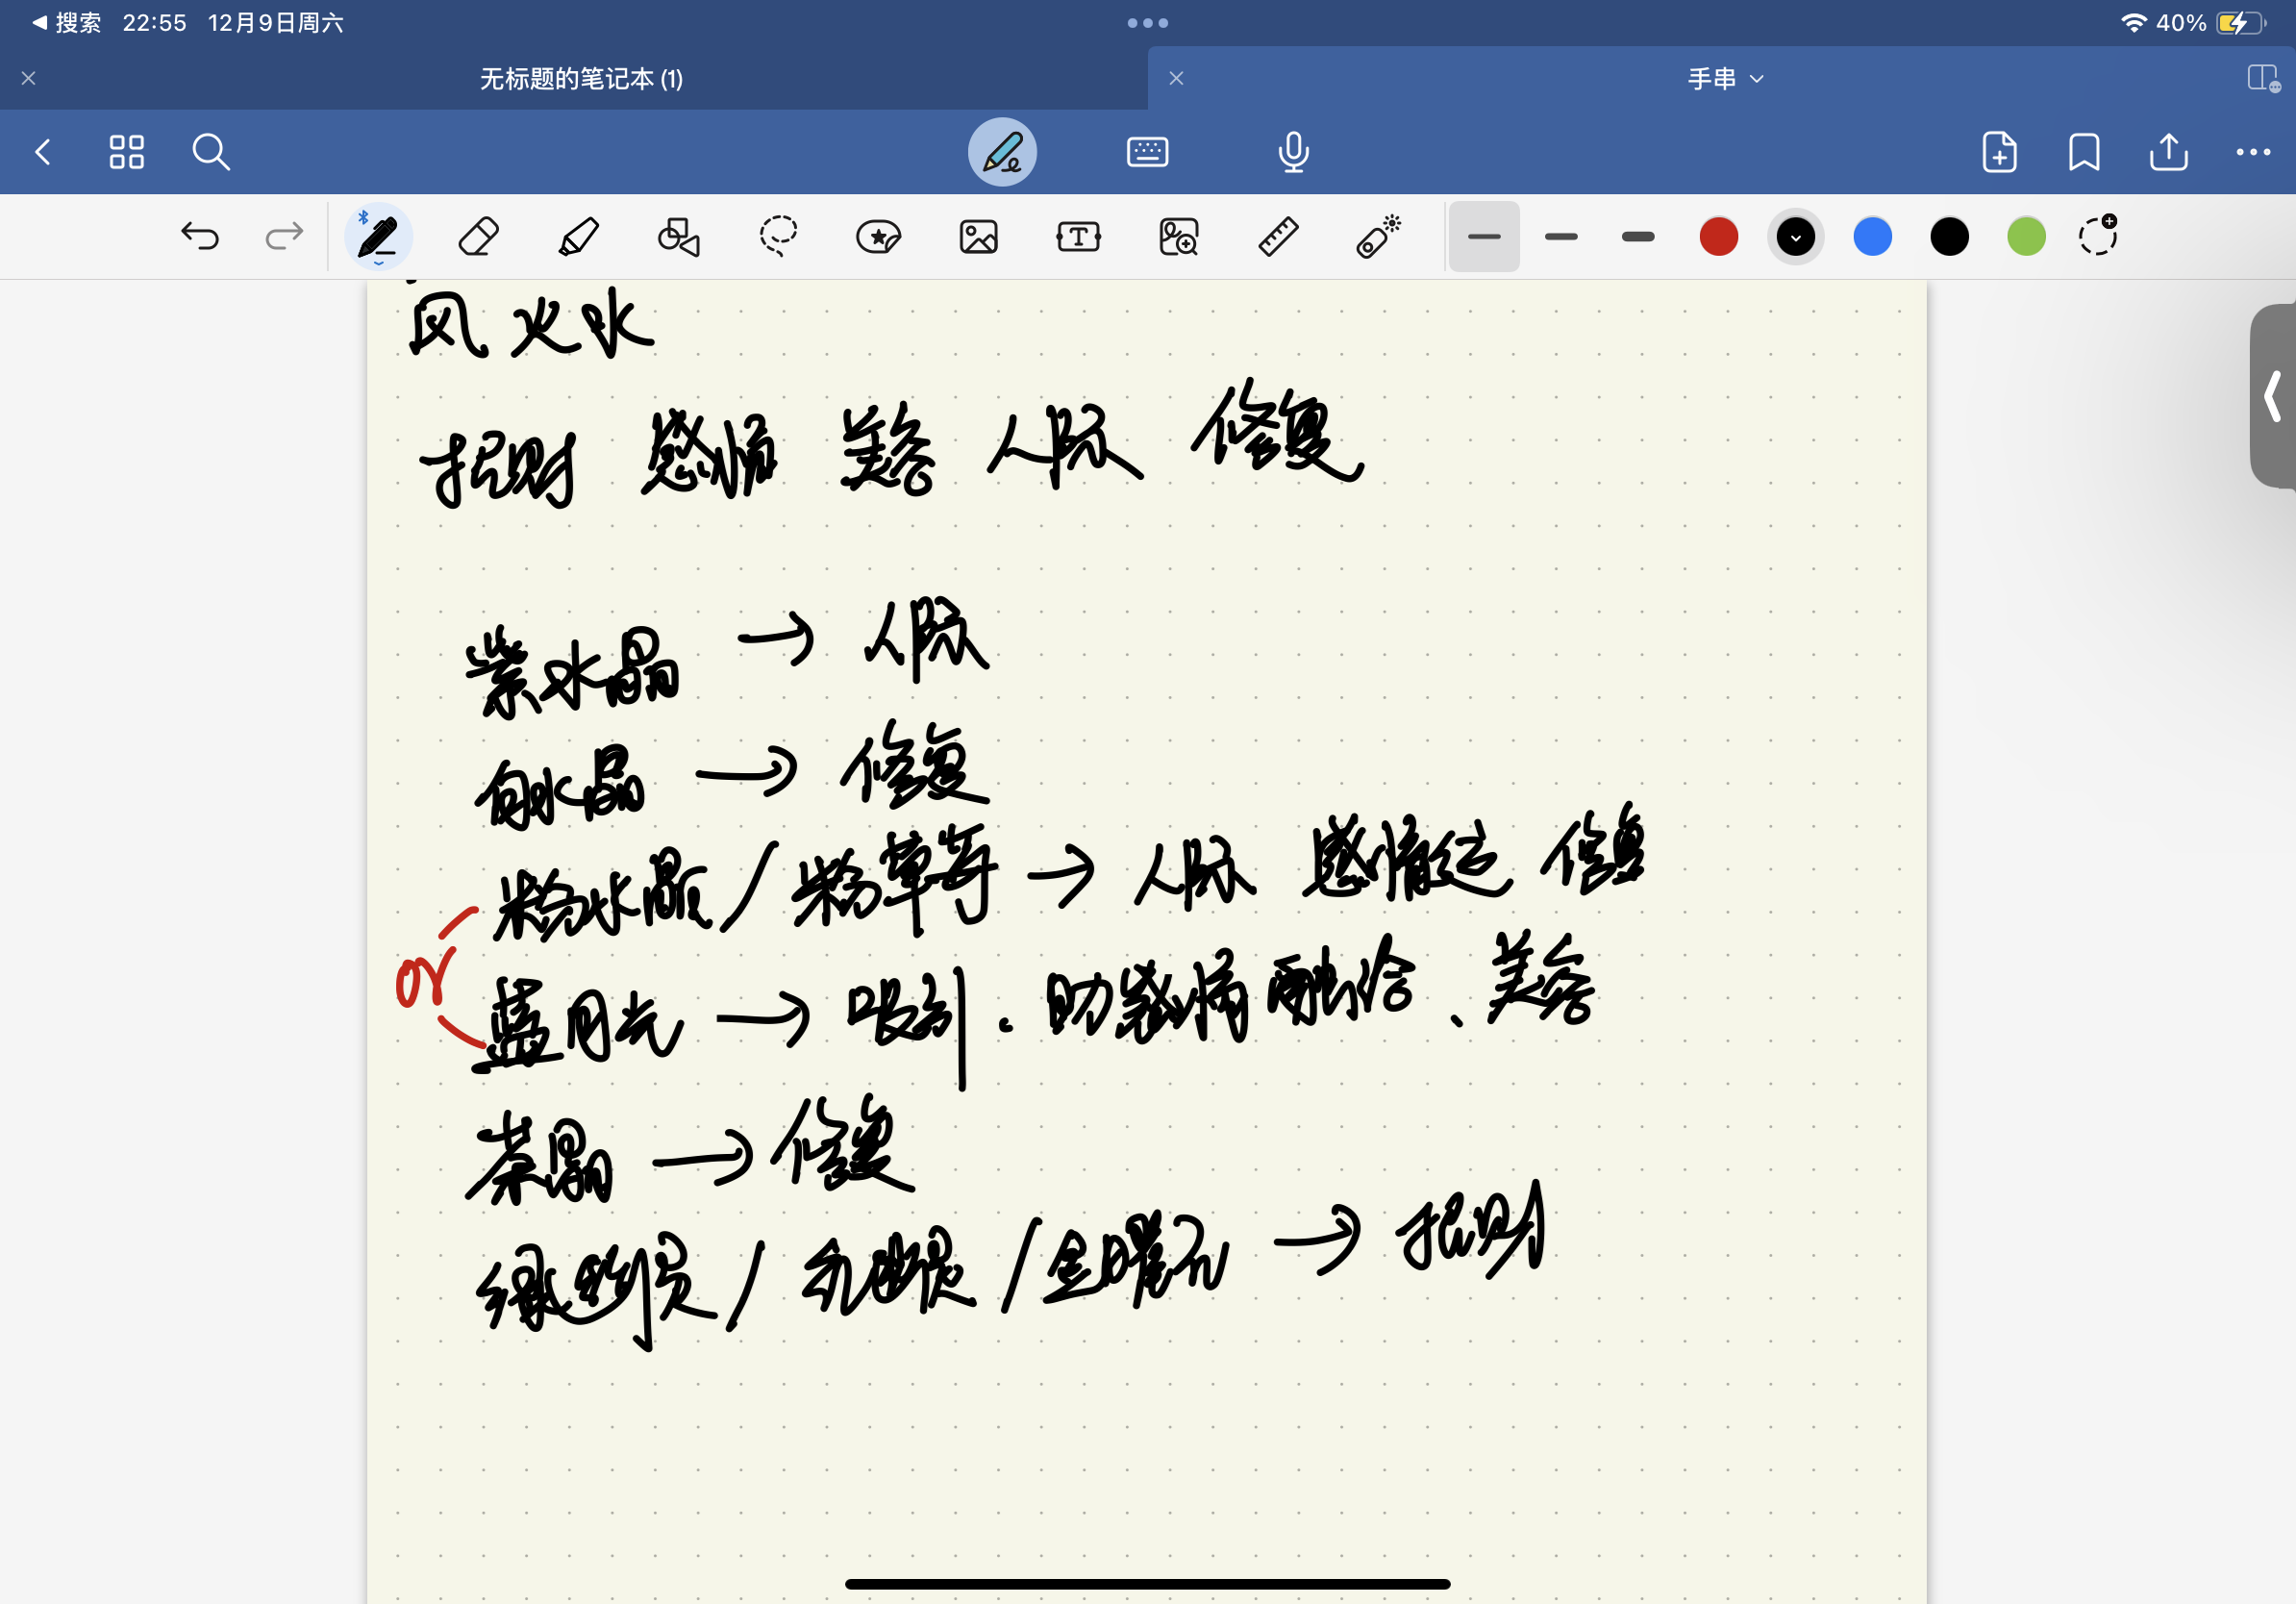 搜索 22:55 12月9日周六 40%
无标题的笔记本 (1) 手串
风 火 水
招财 感情 美容 人脉 修复
紫水晶 → 人脉
白水晶 → 修复
粉水晶 / 粉草莓 → 人脉 感情 修复
or
蓝月光 → 吸引. 助感情融洽、美容
茶晶 → 修复
绿幽灵 / 钛晶 / 金曜石 → 招财